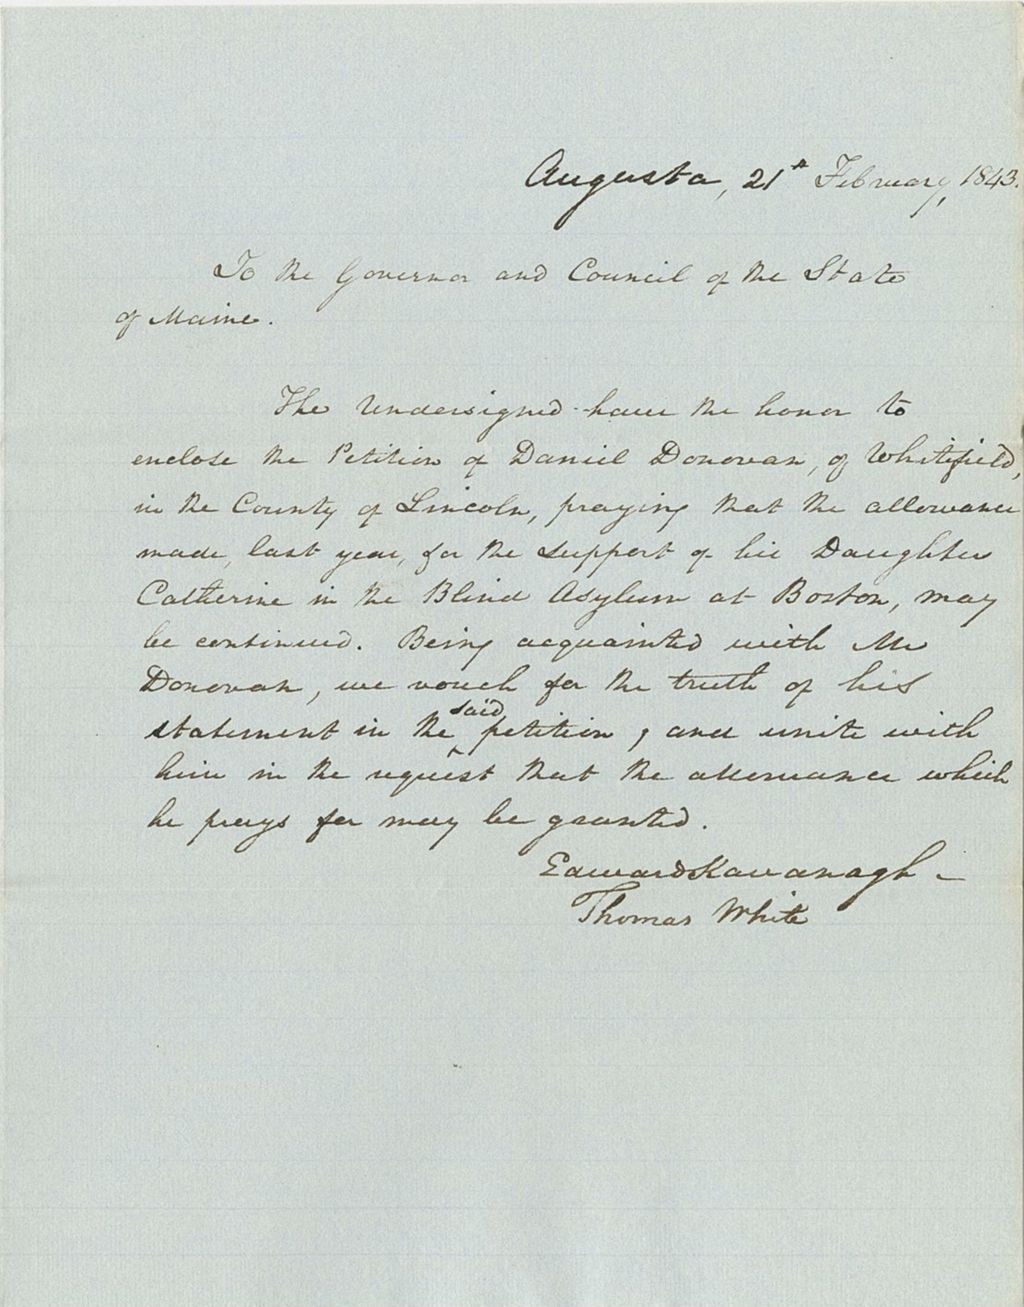 Augusta, 21st February, 1843.
To the Governor and Council of the State
of Maine.
The Undersigned have the honor to
enclose the Petition of Daniel Donovan, of Whitefield,
in the County of Lincoln, praying that the allowance
made, last year, for the support of his Daughter
Catherine in the Blind Asylum at Boston, may
be continued. Being acquainted with Mr
Donovan, we vouch for the truth of his
statement in the said petition, and unite with
him in the request that the allowance which
he prays for may be granted.
Edward Kavanagh
Thomas White